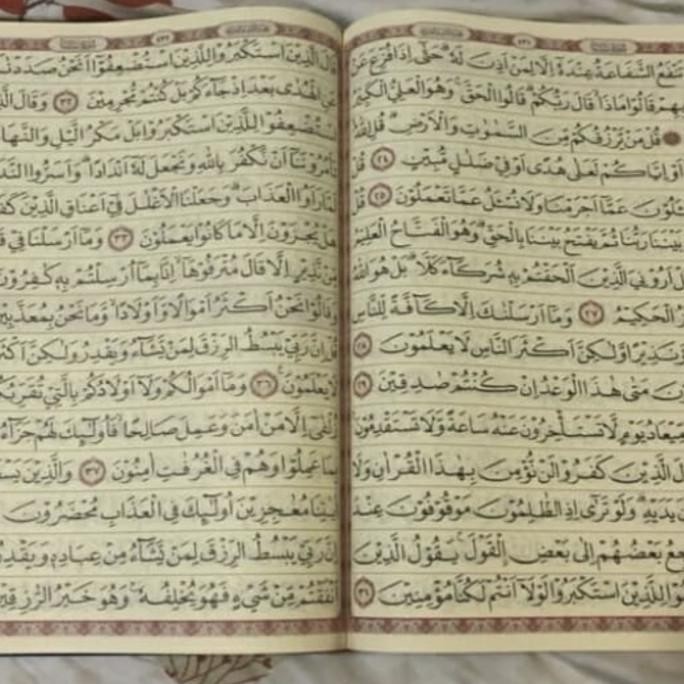 تَنفَعُ الشَّفَاعَةُ عِندَهُ إِلَّا لِمَنْ أَذِنَ لَهُ حَتَّى إِذَا فُزِّعَ عَن
قَالُوا مَاذَا قَالَ رَبُّكُمْ قَالُوا الْحَقَّ وَهُوَ الْعَلِيُّ الْكَبِيرُ
قُلْ مَن يَرْزُقُكُم مِّنَ السَّمَوَتِ وَالْأَرْضِ قُلِ
أَوْ إِيَّاكُمْ لَعَلَى هُدًى أَوْ فِي ضَلَلٍ مُّبِينٍ ٢٤ قُل
عَمَّا أَجْرَمْنَا وَلَا نُسْئَلُ عَمَّا تَعْمَلُونَ ٢٥ قُلْ
بَيْنَنَا رَبُّنَا ثُمَّ يَفْتَحُ بَيْنَنَا بِالْحَقِّ وَهُوَ الْفَتَّاحُ الْعَلِيمُ
أَرُونِيَ الَّذِينَ أَلْحَقْتُم بِهِ شُرَكَاءَ كَلَّا بَلْ هُوَ اللهُ
الْحَكِيمُ ٢٧ وَمَا أَرْسَلْنَكَ إِلَّا كَافَّةً لِّلنَّاسِ
وَنَذِيرًا وَلَكِنَّ أَكْثَرَ النَّاسِ لَا يَعْلَمُونَ ٢٨
مَتَى هَذَا الْوَعْدُ إِن كُنتُمْ صَدِقِينَ ٢٩
مِّيعَادُ يَوْمٍ لَّا تَسْتَأْخِرُونَ عَنْهُ سَاعَةً وَلَا تَسْتَقْدِمُونَ
الَّذِينَ كَفَرُوا لَن نُّؤْمِنَ بِهَذَا الْقُرْآنِ وَلَا
يَدَيْهِ وَلَوْ تَرَى إِذِ الظَّلِمُونَ مَوْقُوفُونَ عِندَ
بَعْضُهُمْ إِلَى بَعْضٍ الْقَوْلَ يَقُولُ الَّذِينَ
لِلَّذِينَ اسْتَكْبَرُوا لَوْلَا أَنتُمْ لَكُنَّا مُؤْمِنِينَ ٣١
قَالَ الَّذِينَ اسْتَكْبَرُوا لِلَّذِينَ اسْتُضْعِفُوا أَنَحْنُ
عَنِ الْهُدَى بَعْدَ إِذْ جَاءَكُم بَلْ كُنتُم مُّجْرِمِينَ ٣٢ وَقَالَ
اسْتُضْعِفُوا لِلَّذِينَ اسْتَكْبَرُوا بَلْ مَكْرُ الَّيْلِ وَالنَّهَارِ
تَأْمُرُونَنَا أَن نَّكْفُرَ بِاللَّهِ وَنَجْعَلَ لَهُ أَندَادًا وَأَسَرُّوا
رَأَوُا الْعَذَابَ وَجَعَلْنَا الْأَغْلَلَ فِي أَعْنَاقِ الَّذِينَ
هَلْ يُجْزَوْنَ إِلَّا مَا كَانُوا يَعْمَلُونَ ٣٣ وَمَا أَرْسَلْنَا فِي
مِّن نَّذِيرٍ إِلَّا قَالَ مُتْرَفُوهَا إِنَّا بِمَا أُرْسِلْتُم بِهِ كَفِرُونَ
وَقَالُوا نَحْنُ أَكْثَرُ أَمْوَالًا وَأَوْلَادًا وَمَا نَحْنُ بِمُعَذَّبِينَ
قُلْ إِنَّ رَبِّي يَبْسُطُ الرِّزْقَ لِمَن يَشَاءُ وَيَقْدِرُ وَلَكِنَّ
لَا يَعْلَمُونَ ٣٦ وَمَا أَمْوَالُكُمْ وَلَا أَوْلَادُكُم بِالَّتِي تُقَرِّبُكُمْ
زُلْفَى إِلَّا مَنْ آمَنَ وَعَمِلَ صَالِحًا فَأُولَئِكَ لَهُمْ جَزَاءُ
بِمَا عَمِلُوا وَهُمْ فِي الْغُرُفَتِ آمِنُونَ ٣٧ وَالَّذِينَ
مُعَجِزِينَ أُولَئِكَ فِي الْعَذَابِ مُحْضَرُونَ
إِنَّ رَبِّي يَبْسُطُ الرِّزْقَ لِمَن يَشَاءُ مِنْ عِبَادِهِ وَيَقْدِرُ
أَنفَقْتُم مِّن شَيْءٍ فَهُوَ يُخْلِفُهُ وَهُوَ خَيْرُ الرَّزِقِينَ